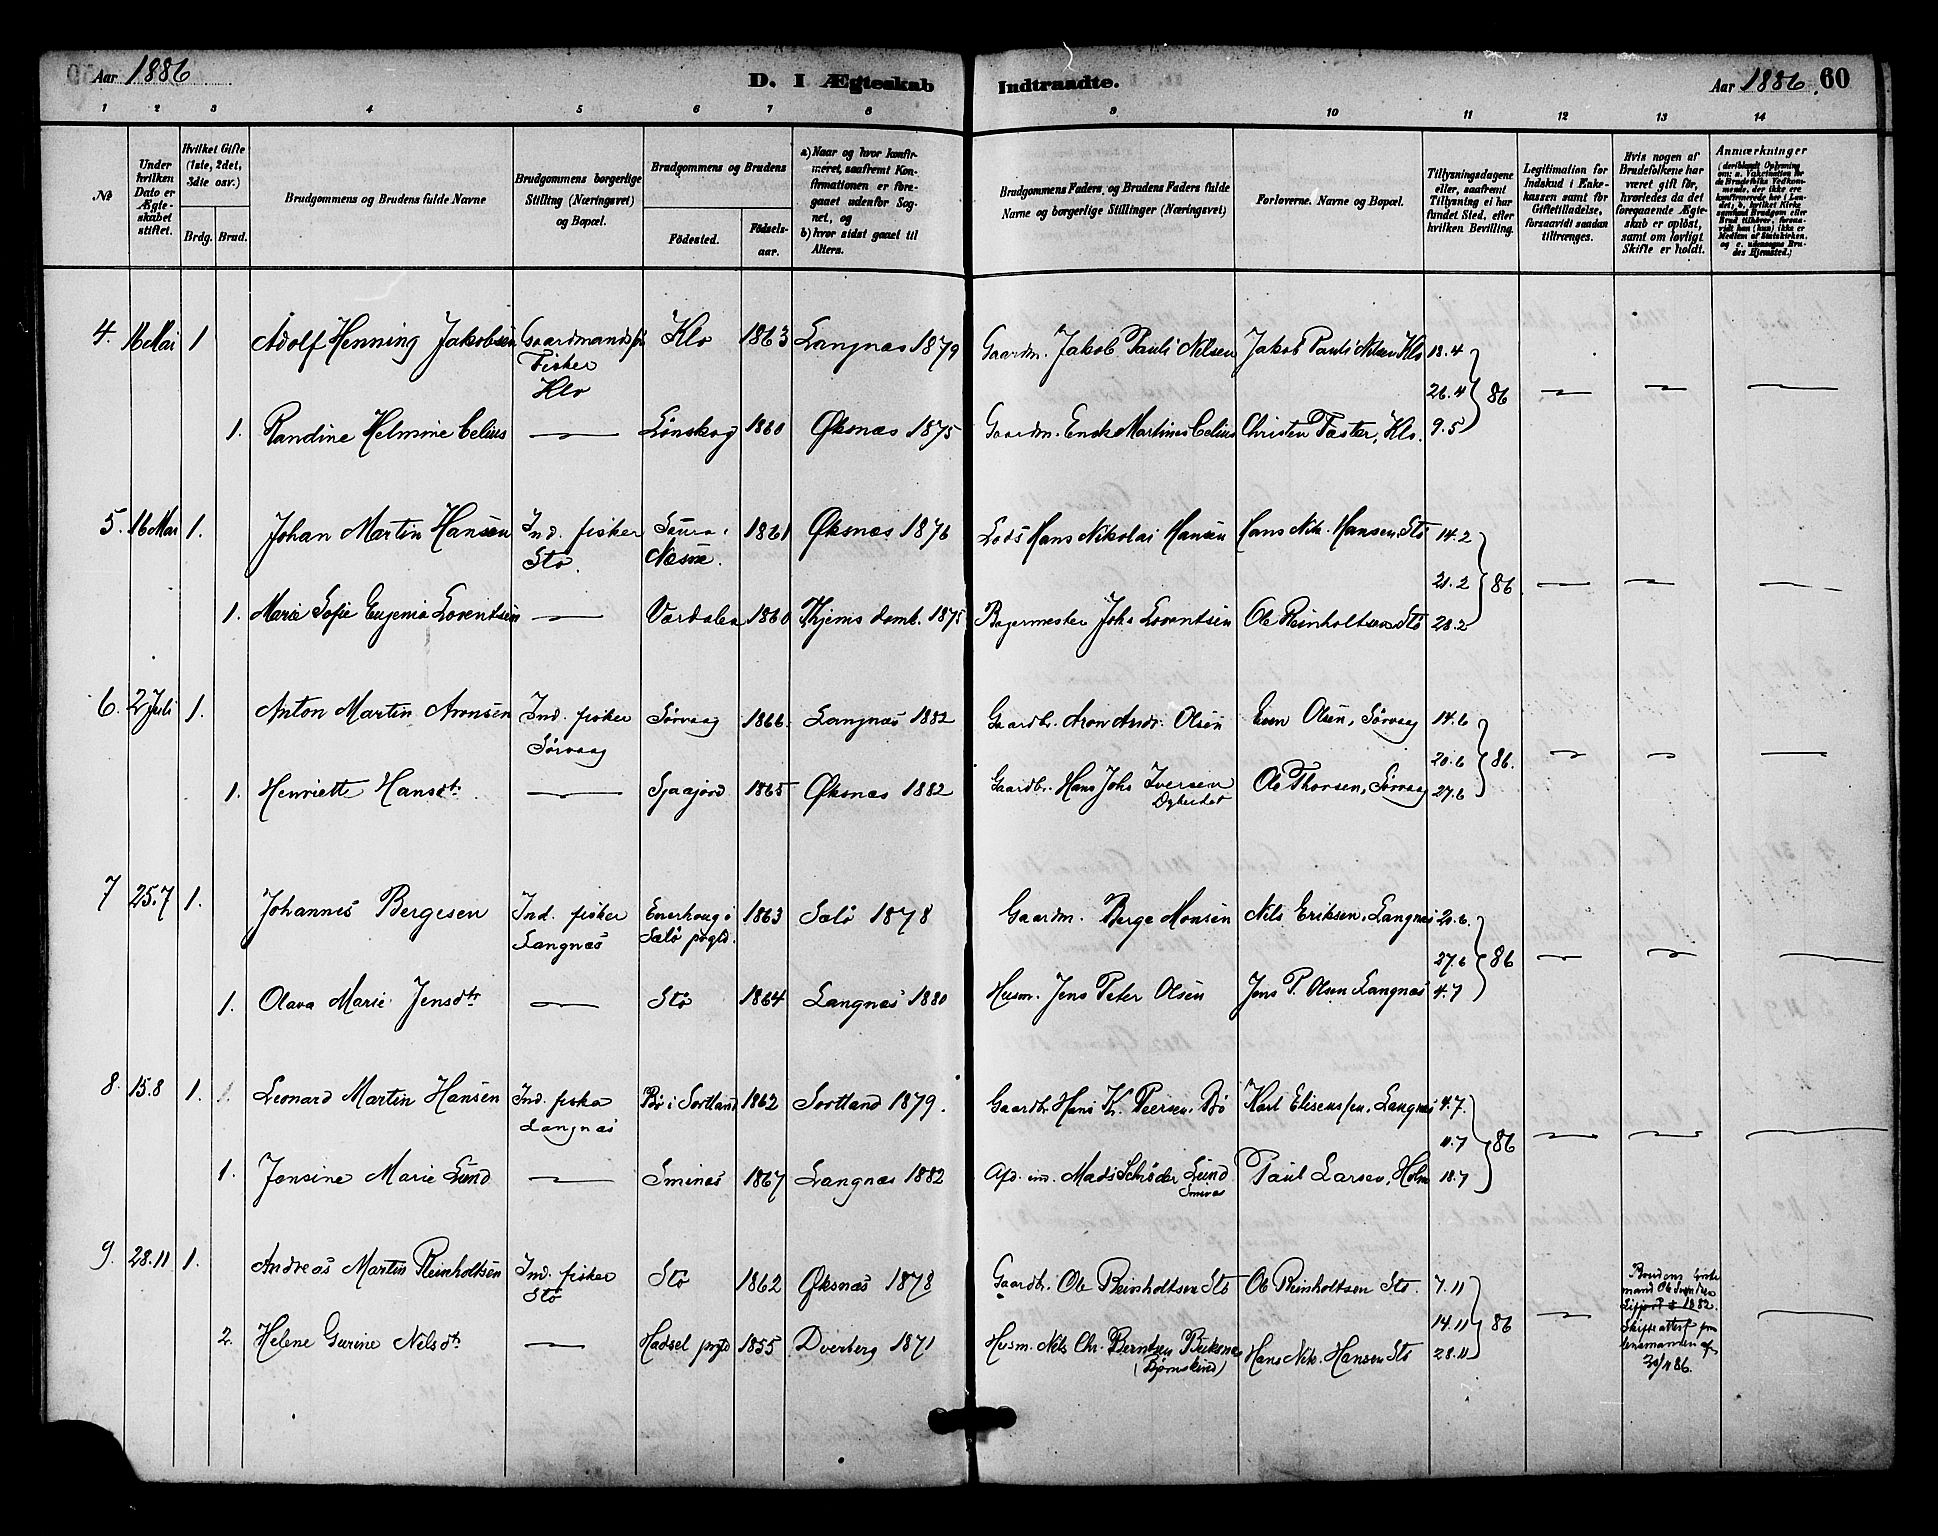 Aar 1886 D. I Ægteskab Indtraadte. Aar 1886. 60
1 2 3 4 5 6 7 8 9 10 11 12 13 14
No
Under hvilken Dato er Ægteskabet stiftet.
Hvilket Gifte (1ste, 2det, 3die osv.)
Brdg. Brud.
Brudgommens og Brudens fulde Navne
Brudgommens borgerlige Stilling (Næringsvei) og Bopæl.
Brudgommens og Brudens
Fødested.
Fødselsaar.
a) Naar og hvor konfirmeret, saafremt Konfirmationen er foregaaet udenfor Sognet, og
b) hvor sidst gaaet til Alters.
Brudgommens Faders, og Brudens Faders fulde Navne og borgerlige Stillinger (Næringsvei)
Forloverne. Navne og Bopæl.
Tillysningsdagene eller, saafremt Tillysning ei har fundet Sted, efter hvilken Bevilling.
Legitimation for Indskud i Enkekassen samt for Giftetilladelse, forsaavidt saadan tiltrænges.
Hvis nogen af Brudefolkene har været gift før, hvorledes da det foregaaende Ægteskab er opløst, samt om lovligt Skifte er holdt.
Anmærkninger
4. 16 Mai 1 Adolf Henning Jakobsen Gaardmands Klo 1863 Langnæs 1879 Gaardm. Jakob Pauli Nilsen Jakob Pauli Nilsen Klo 18.4
Fisker
Klo
26.4 86
1. Randine Helmine Celius Lønskog 1860 Øksnæs 1875 Gaardm. Martinus Celius Christen Faster, Klo. 9.5
5. 16 Mai 1. Johan Martin Hansen Ind. fisker Saura i 1861 Øksnæs 1876 Lods Hans Nikolai Hansen Hans Nik. Hansen Stø 14.2
Stø. Næsne.
21.2 86
1. Marie Sofie Eugenia Lorentsen Værdalen 1860 Thjems domk. 1875 Bagermester Johs Lorentsen Ole Reinholtsen Stø 28.2
6. 2 Juli 1. Anton Martin Aronsen Ind. fisker Sørvaag 1866. Langnæs 1882 Gaardbr. Aron Andr. Olsen Even Olsen, Sørvaag 14.6
Sørvaag
20.6 86.
1. Henriette Hansdtr. 1865 Øksnæs 1882 Gaardbr. Hans Johs Iversen Ole Thorsen, Sørvaag 27.6
7 25.7 1. Johannes Bergesen Ind. fisker i 1863 Sælø 1878 Gaardm. Berge Monsen Nils Eriksen, Langnæs 20.6.
Langnæs Sælø prgld.
27.6 86
1. Olava Marie Jensdtr Stø 1864 Langnæs 1880 Husm. Jens Peter Olsen Jens P. Olsen Langnæs 4.7
8. 15.8 1. Leonard Martin Hansen Ind. fisker Bø i Sortland 1862 Sortland 1879. Gaardbr. Hans Kr. Peersen, Bø Karl Elisenssen, Langnæs 4.7.
Langnæs
11.7 86
1. Jensine Marie Lund Sminæs 1867 Langnæs 1882 Afd. ind. Mads Schrøder Lund Paul Larsen, Holm 18.7
Sminæs
9. 28.11 1. Andreas Martin Reinholtsen Ind. fisker Stø 1862 Øksnæs 1878 Gaardbr. Ole Reinholtsen Stø Ole Reinholtsen Stø. 7.11
Stø
14.11 86
2. Helene Gurine Nilsdtr Hadsel prgld 1855 Dverberg 1871 Husm. Nils Chr. Berntsen Hans Nik. Hansen Stø 28.11
(Bjørnskind)
Brudens første
mand Ole
1882.
Skifteattest fra
lensmanden af